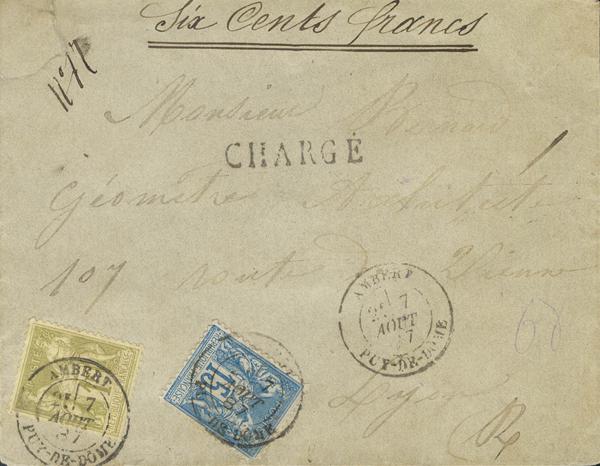 Six Cents francs
N° 72
Monsieur Renard
CHARGÉ
Géomètre Architecte
107 route de Vienne
Lyon
AMBERT
7
AOUT
PUY-DE-DOME
AMBERT
7
AOUT
PUY-DE-DOME
15
7
AOUT
DE-DOME
R